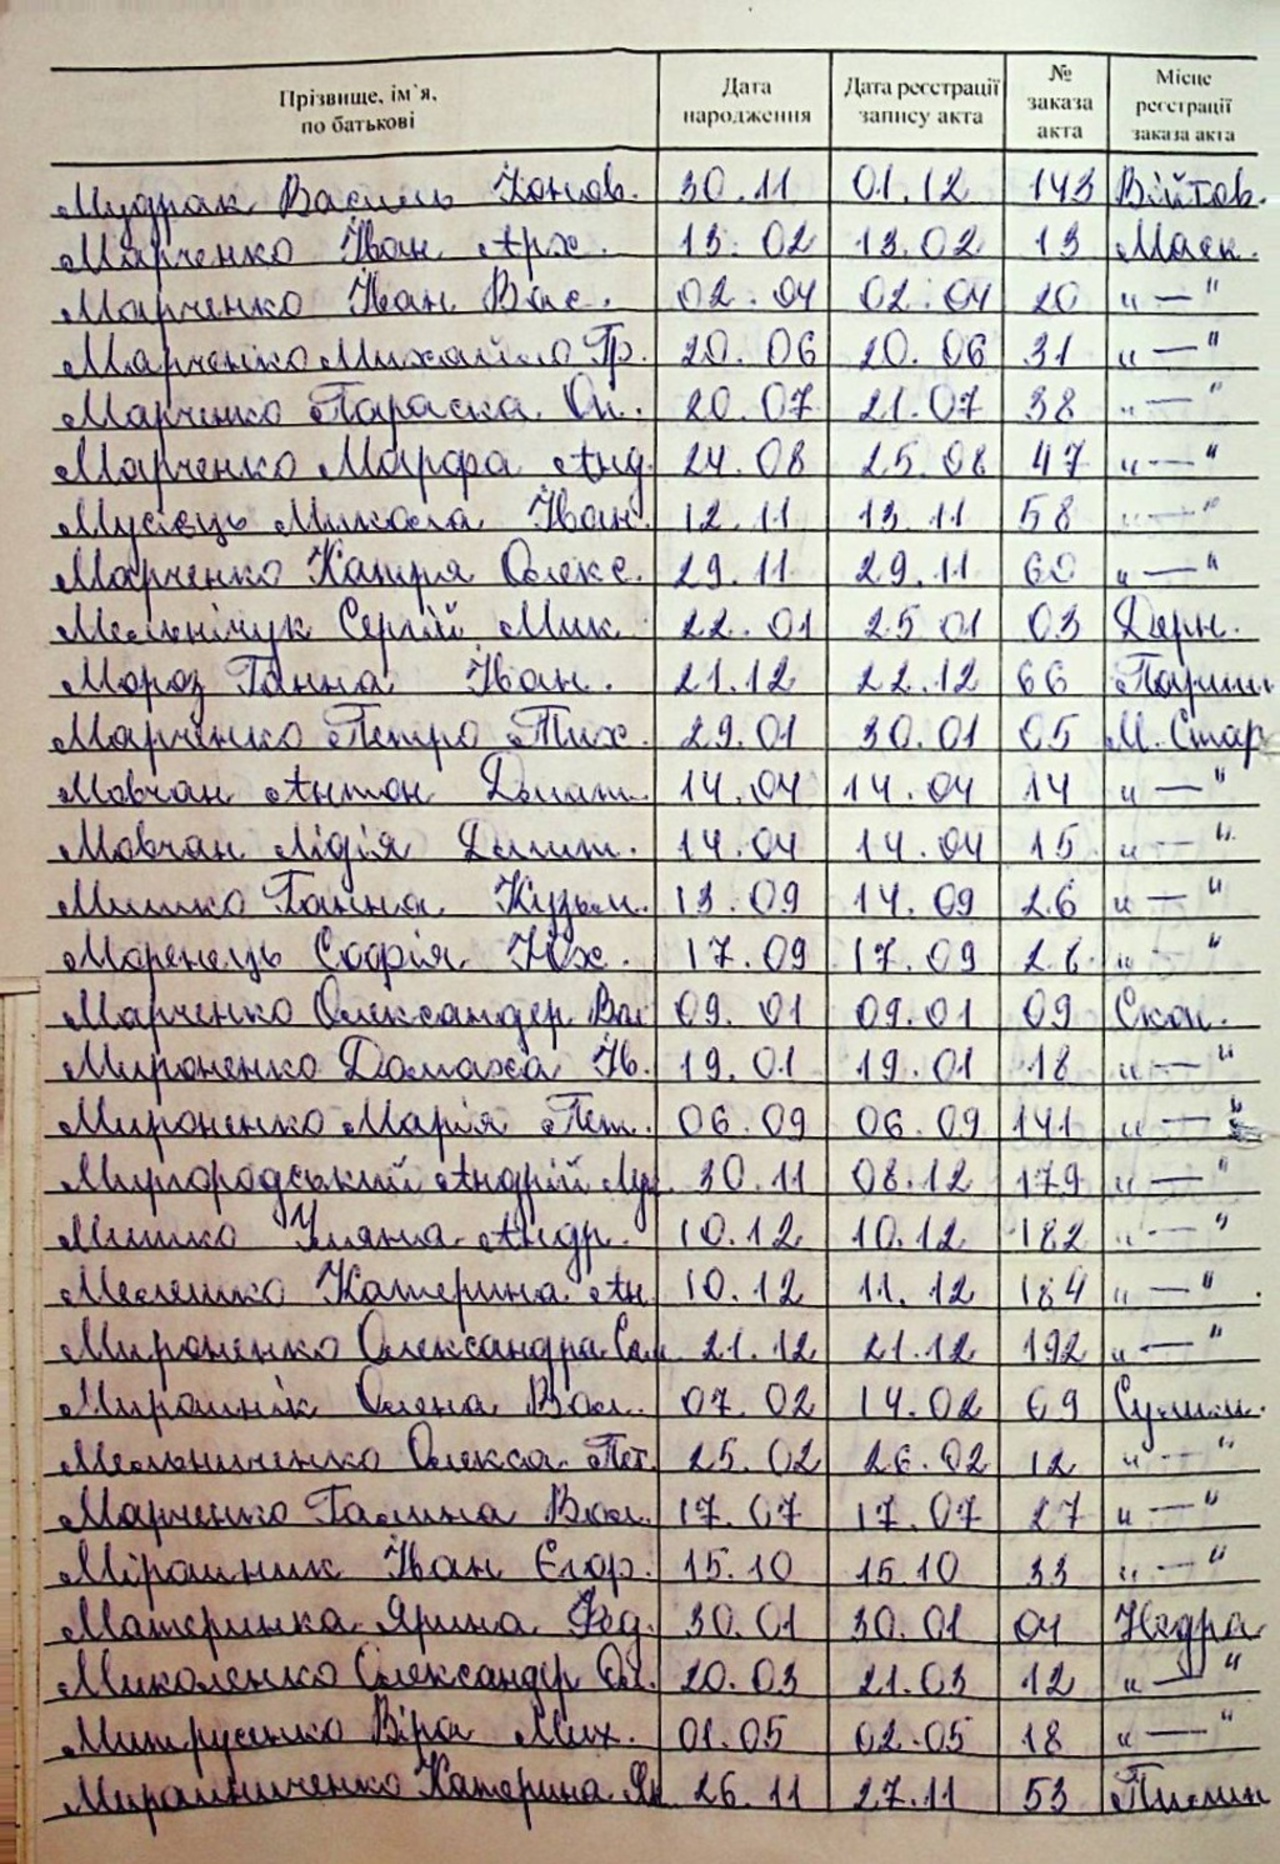 Прізвище, ім`я, по батькові Дата народження Дата реєстрації запису акта № заказа акта Місце реєстрації заказа акта
Мудрак Василь Іонов. 30.11 01.12 143 Війтов.
Марченко Іван Арх. 13.02 13.02 13 Маск.
Марченко Іван Вас. 02.04 02.04 20 "—"
Марченко Михайло Гр. 20.06 20.06 31 "—"
Марченко Параска Он. 20.07 21.07 38 "—"
Марченко Марфа Анд. 24.08 25.08 47 "—"
Мусієць Микола Іван. 12.11 13.11 58 "—"
Марченко Катря Олекс. 29.11 29.11 60 "—"
Мельнічук Сергій Мик 22.01 25 01 03 Дерн.
Мороз Ганна Іван. 21.12 22.12 66
Марченко Петро Тих. 29.01 30.01 05 М. Стар
Мовчан Антон Дмит. 14.04 14.04 14 "—"
Мовчан Лідія Дмит. 14.04 14.04 15 "—"
Мишко Ганна Кузьм. 13.09 14.09 26 "—"
Маренець Софія Юх. 17.09 17.09 "—"
Марченко Олександер Вас 09.01 09.01 09 Скоп.
Мироненко Домаха Ів. 19.01 19.01 18 "—"
Мироненко Марія Пет. 06.09 06.09 141 "—"
Миргородський Андрій 30.11 08.12 179 "—"
Мишко Уляна Андр. 10.12 10.12 182 "—"
Мелешко Катерина Ан. 10.12 11.12 184 "—"
Мироненко Олександра Сам 21.12 21.12 192 "—"
Мирошнік Олена Вас. 07.02 14.02 69 Сулим.
Мельниченко Олекса Пет. 25.02 26.02 12 "—"
Марченко Галина Вас. 17.07 17.07 27 "—"
Мірошник Іван Єгор. 15.10 15.10 33 "—"
Материнка Ярина Фед. 30.01 30.01 04 Недра
Миколенко Олександер Ол. 20.03 21.03 12 "—"
Митрусенко Віра Мих. 01.05 02.05 18 "—"
Мирошниченко Катерина Як 26.11 27.11 53